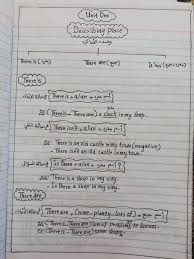 Unit One
Describing Place
There is (مفرد) There are (جمع) It has (مفرد)
There is
[There is + a/an + اسم مفرد]
Ex: (There is - There are) a clock in my shop.
[There isn't + a/an + اسم مفرد]
Ex: There is an old castle in my town (negative)
There isn't an old castle in my town.
[Is there + a/an + اسم مفرد ?]
Ex: There is a shop in my city.
- Is there a shop in my city.
There are
[There are + (some - plenty - lots of) + اسم جمع]
Ex: (There is - There are) lots of problems to discuss.
Ex: (There is - There are) some shops.